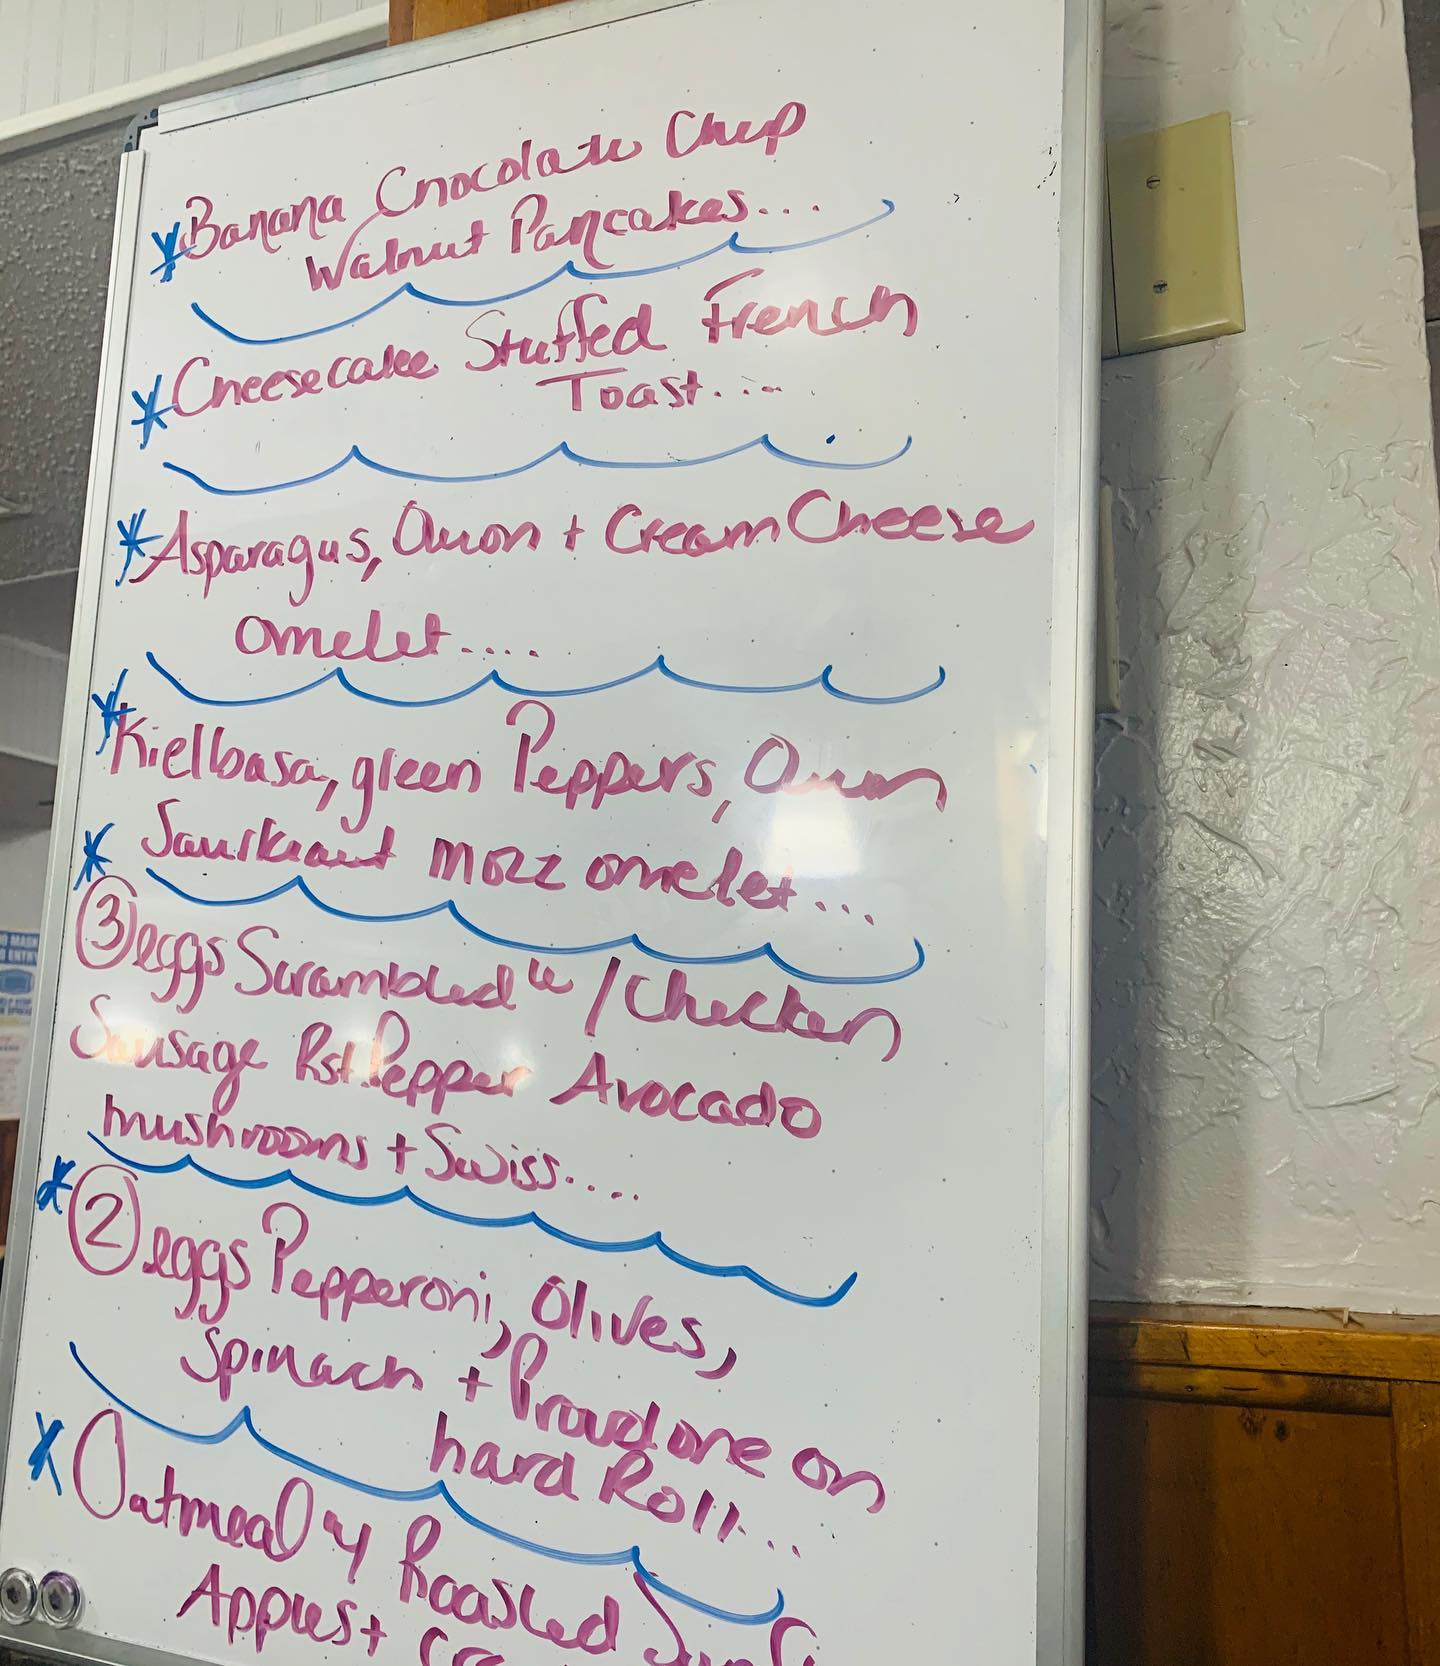 Banana Chocolate Chip
Walnut Pancakes...
Cheesecake Stuffed French
Toast....
Asparagus, Onion + Cream Cheese
omelet.....
Kielbasa, green Peppers, Onion
Saurkraut mozz omelet...
3 eggs Scrambled w/Chicken
Sausage Rst. Pepper Avocado
mushrooms + Swiss....
2 eggs Pepperoni, Olives,
Spinach + Provolone on
hard Roll...
Oatmeal w/ Roasted
Apples +